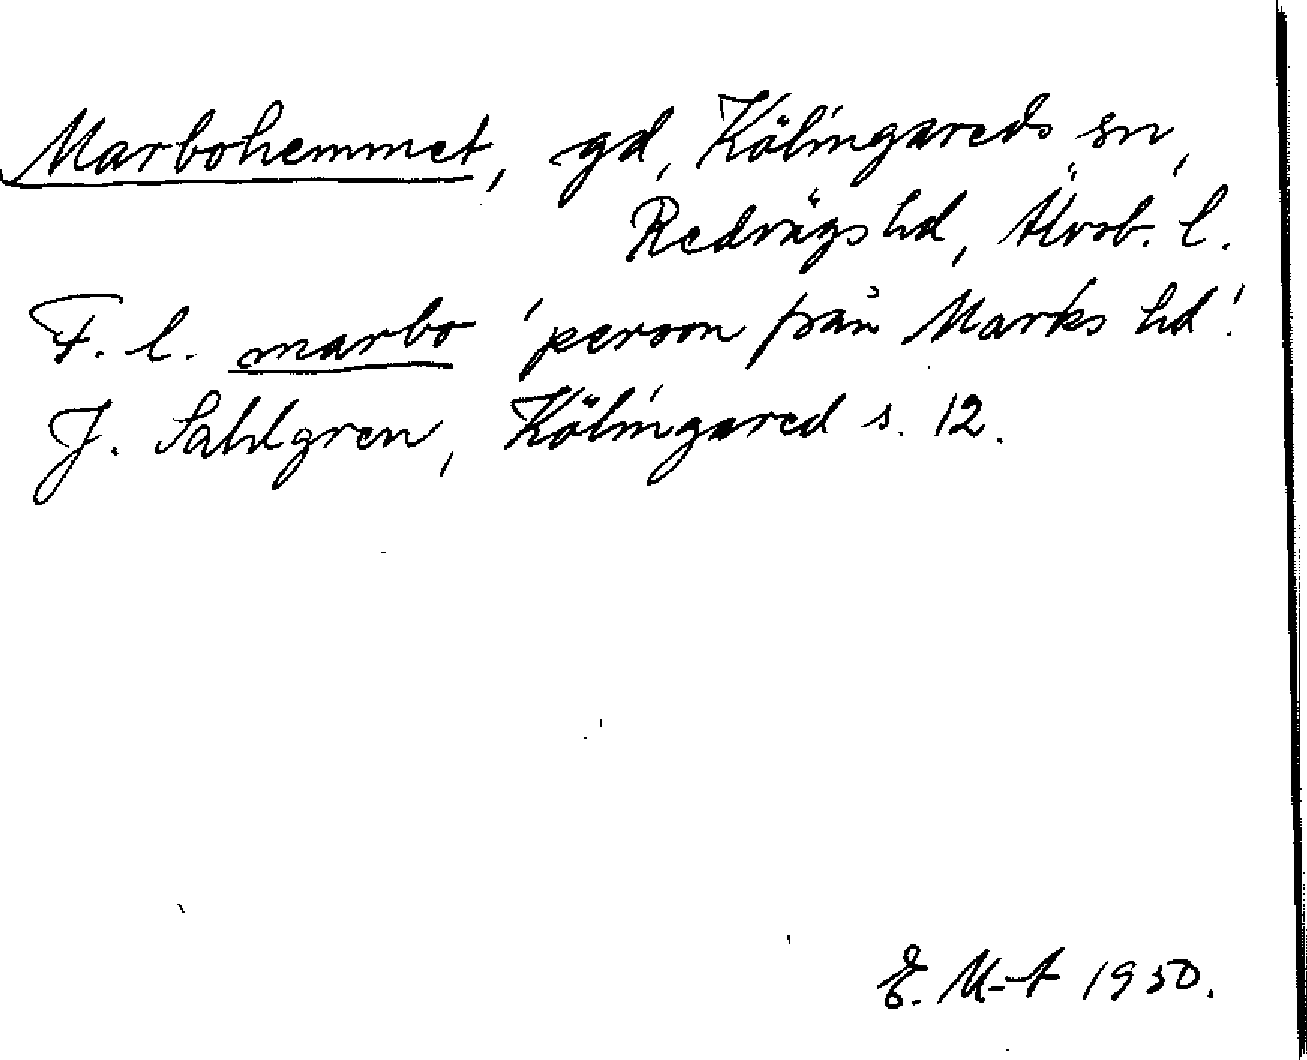 Marbohemmet, gd, Kölingareds sn,
Redvägs hd, Älvsb. l.
F. l. marbo 'person från Marks hd'.
J. Sahlgren, Kölingared s. 12.
E. M-t 1950.